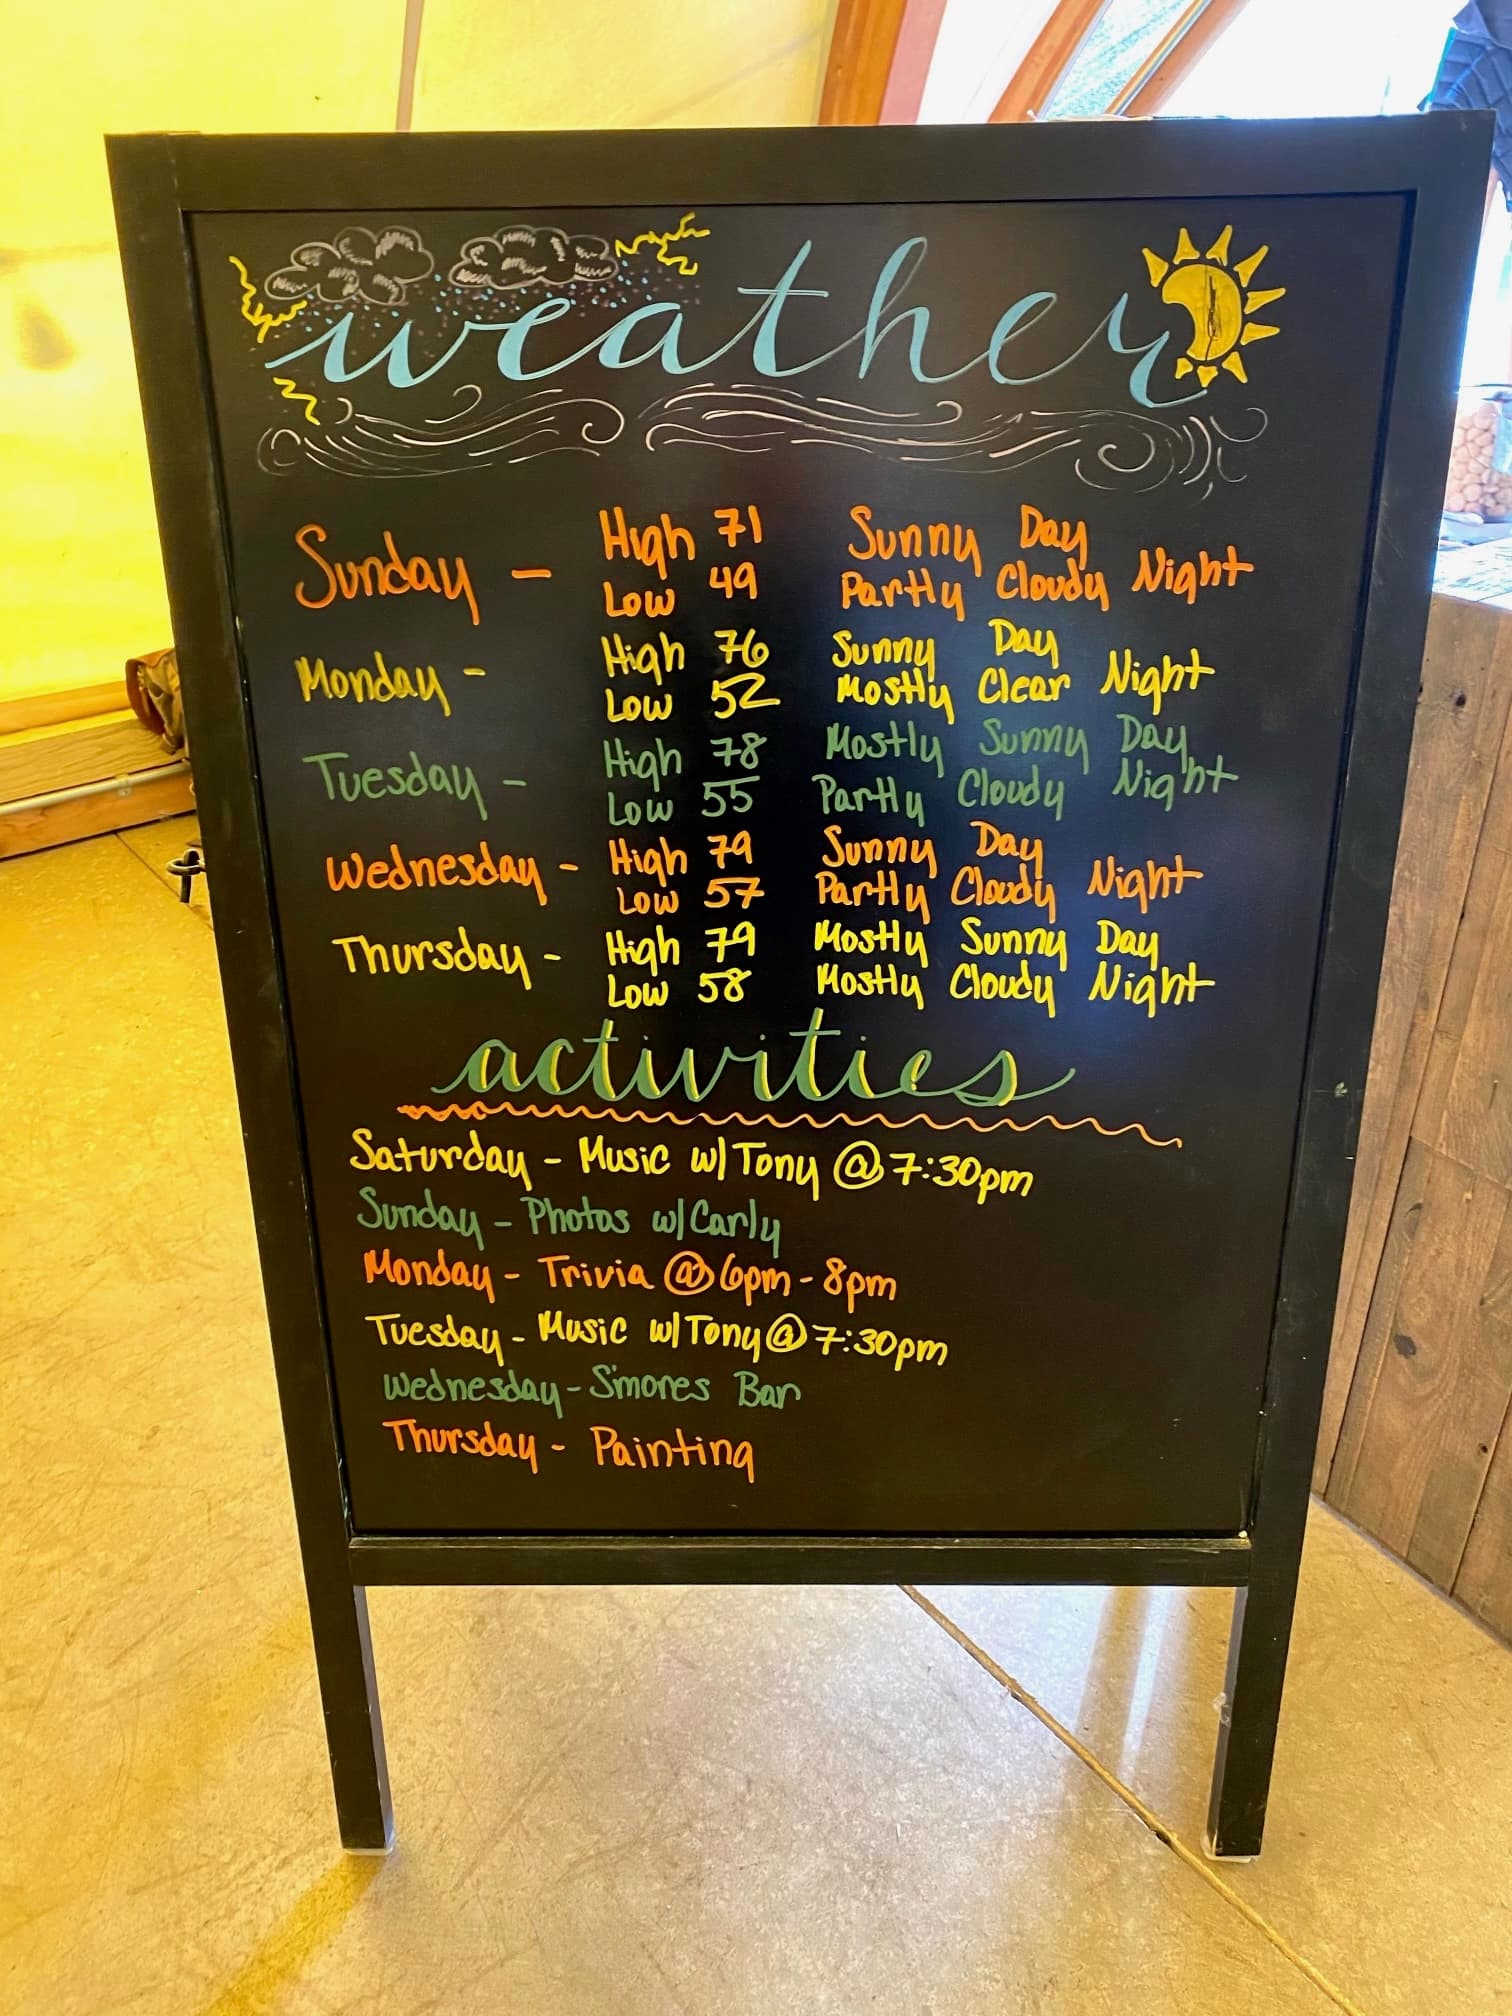 weather
Sunday - High 71 Sunny Day
Low 49 Partly Cloudy Night
Monday - High 76 Sunny Day
Low 52 Mostly Clear Night
Tuesday - High 78 Mostly Sunny Day
Low 55 Partly Cloudy Night
Wednesday - High 79 Sunny Day
Low 57 Partly Cloudy Night
Thursday - High 79 Mostly Sunny Day
Low 58 Mostly Cloudy Night
activities
Saturday - Music w/Tony @ 7:30pm
Sunday - Photos w/Carly
Monday - Trivia @ 6pm - 8pm
Tuesday - Music w/Tony @ 7:30pm
Wednesday - S'mores Bar
Thursday - Painting